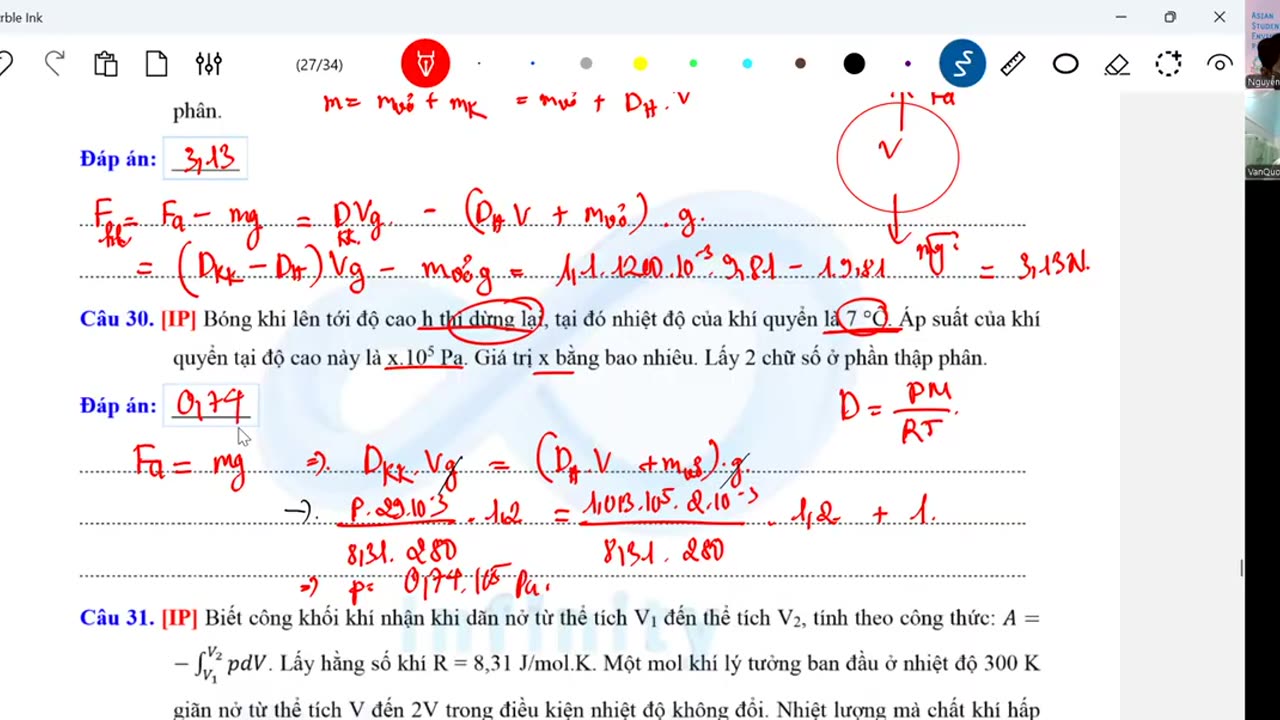 rble Ink
(27/34)
ASIAN
phân.
m = mvỏ + mK = mvỏ + DH . V
Fa
V
Đáp án: 3,13
Fhl = Fa - mg = DKK Vg - (DH V + mvỏ) . g.
= (DKK - DH) Vg - mvỏ g = 1,1.1200.10⁻³.9,81 - 1.9,81 = 3,13N.
mg
Câu 30. [IP] Bóng khi lên tới độ cao h thì dừng lại, tại đó nhiệt độ của khí quyển là 7 °C. Áp suất của khí
quyển tại độ cao này là x.10⁵ Pa. Giá trị x bằng bao nhiêu. Lấy 2 chữ số ở phần thập phân.
Đáp án: 0,74
D = PM / RT .
Fa = mg => DKK . Vg = (DH . V + mvỏ) . g.
-> P.29.10⁻³ / 8,31.280 . 1,2 = 1,013.10⁵.2.10⁻³ / 8,31.280 . 1,2 + 1.
=> p = 0,74.10⁵ Pa.
Câu 31. [IP] Biết công khối khí nhận khi dãn nở từ thể tích V₁ đến thể tích V₂, tính theo công thức: A =
− ∫ᵥ₁ⱽ² pdV. Lấy hằng số khí R = 8,31 J/mol.K. Một mol khí lý tưởng ban đầu ở nhiệt độ 300 K
giãn nở từ thể tích V đến 2V trong điều kiện nhiệt độ không đổi. Nhiệt lượng mà chất khí hấp
Infinity
Nguyễn
VanQuo